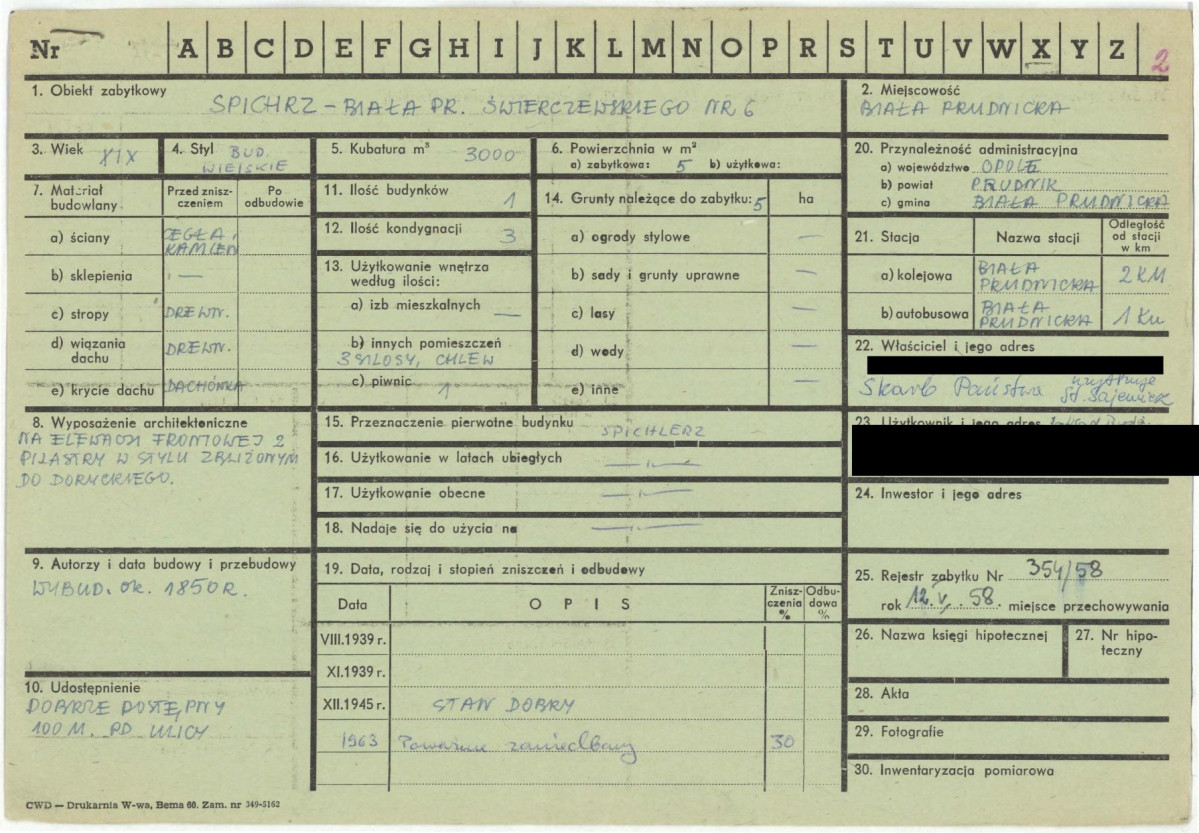 Nr A B C D E F G H I J K L M N O P R S T U V W X Y Z 2
1. Obiekt zabytkowy
SPICHRZ – BIAŁA PR. ŚWIERCZEWSKIEGO NR 6
2. Miejscowość
BIAŁA PRUDNICKA
3. Wiek XIX
4. Styl BUD.
WIEJSKIE
5. Kubatura m³ 3000
6. Powierzchnia w m²
a) zabytkowa: 5 b) użytkowa:
20. Przynależność administracyjna
a) województwo OPOLE
b) powiat PRUDNIK
c) gmina BIAŁA PRUDNICKA
7. Materiał
budowlany
Przed znisz-
czeniem
Po
odbudowie
a) ściany CEGŁA,
KAMIEŃ
b) sklepienia —
c) stropy DREWN.
d) wiązania
dachu DREWN.
e) krycie dachu DACHÓWKA
11. Ilość budynków 1
12. Ilość kondygnacji 3
13. Użytkowanie wnętrza
według ilości:
a) izb mieszkalnych —
b) innych pomieszczeń
3 SILOSY, CHLEW
c) piwnic 1
14. Grunty należące do zabytku: 5 ha
a) ogrody stylowe —
b) sady i grunty uprawne —
c) lasy —
d) wody —
e) inne —
21. Stacja
Nazwa stacji
Odległość
od stacji
w km
a) kolejowa BIAŁA
PRUDNICKA 2 KM
b) autobusowa BIAŁA
PRUDNICKA 1 KM
22. Właściciel i jego adres
Skarb Państwa
8. Wyposażenie architektoniczne
NA ELEWACJI FRONTOWEJ 2
PILASTRY W STYLU ZBLIŻONYM
DO DORYCKIEGO.
15. Przeznaczenie pierwotne budynku SPICHLERZ
16. Użytkowanie w latach ubiegłych —„—
17. Użytkowanie obecne —„—
18. Nadaje się do użycia na —„—
23. Użytkownik i jego adres
24. Inwestor i jego adres
9. Autorzy i data budowy i przebudowy
WYBUD. OK. 1850 R.
19. Data, rodzaj i stopień zniszczeń i odbudowy
Data
OPIS
Znisz-
czenia
%
Odbu-
dowa
%
VIII.1939 r.
XI.1939 r.
XII.1945 r. STAN DOBRY
1963 Poważnie zaniedbany 30
25. Rejestr zabytku Nr 354/58
rok 12.V.58. miejsce przechowywania
26. Nazwa księgi hipotecznej
27. Nr hipo-
teczny
10. Udostępnienie
DOBRZE DOSTĘPNY
100 M. OD ULICY
28. Akta
29. Fotografie
30. Inwentaryzacja pomiarowa
CWD — Drukarnia W-wa, Bema 60. Zam. nr 349-5162